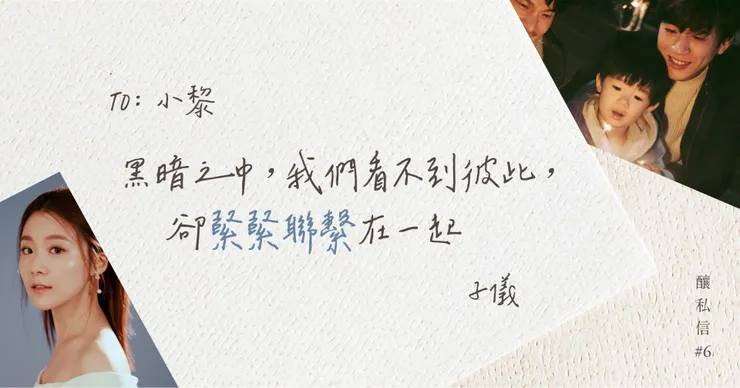 TO: 小黎
黑暗之中，我們看不到彼此，
卻緊緊聯繫在一起
子儀
釀私信
#6